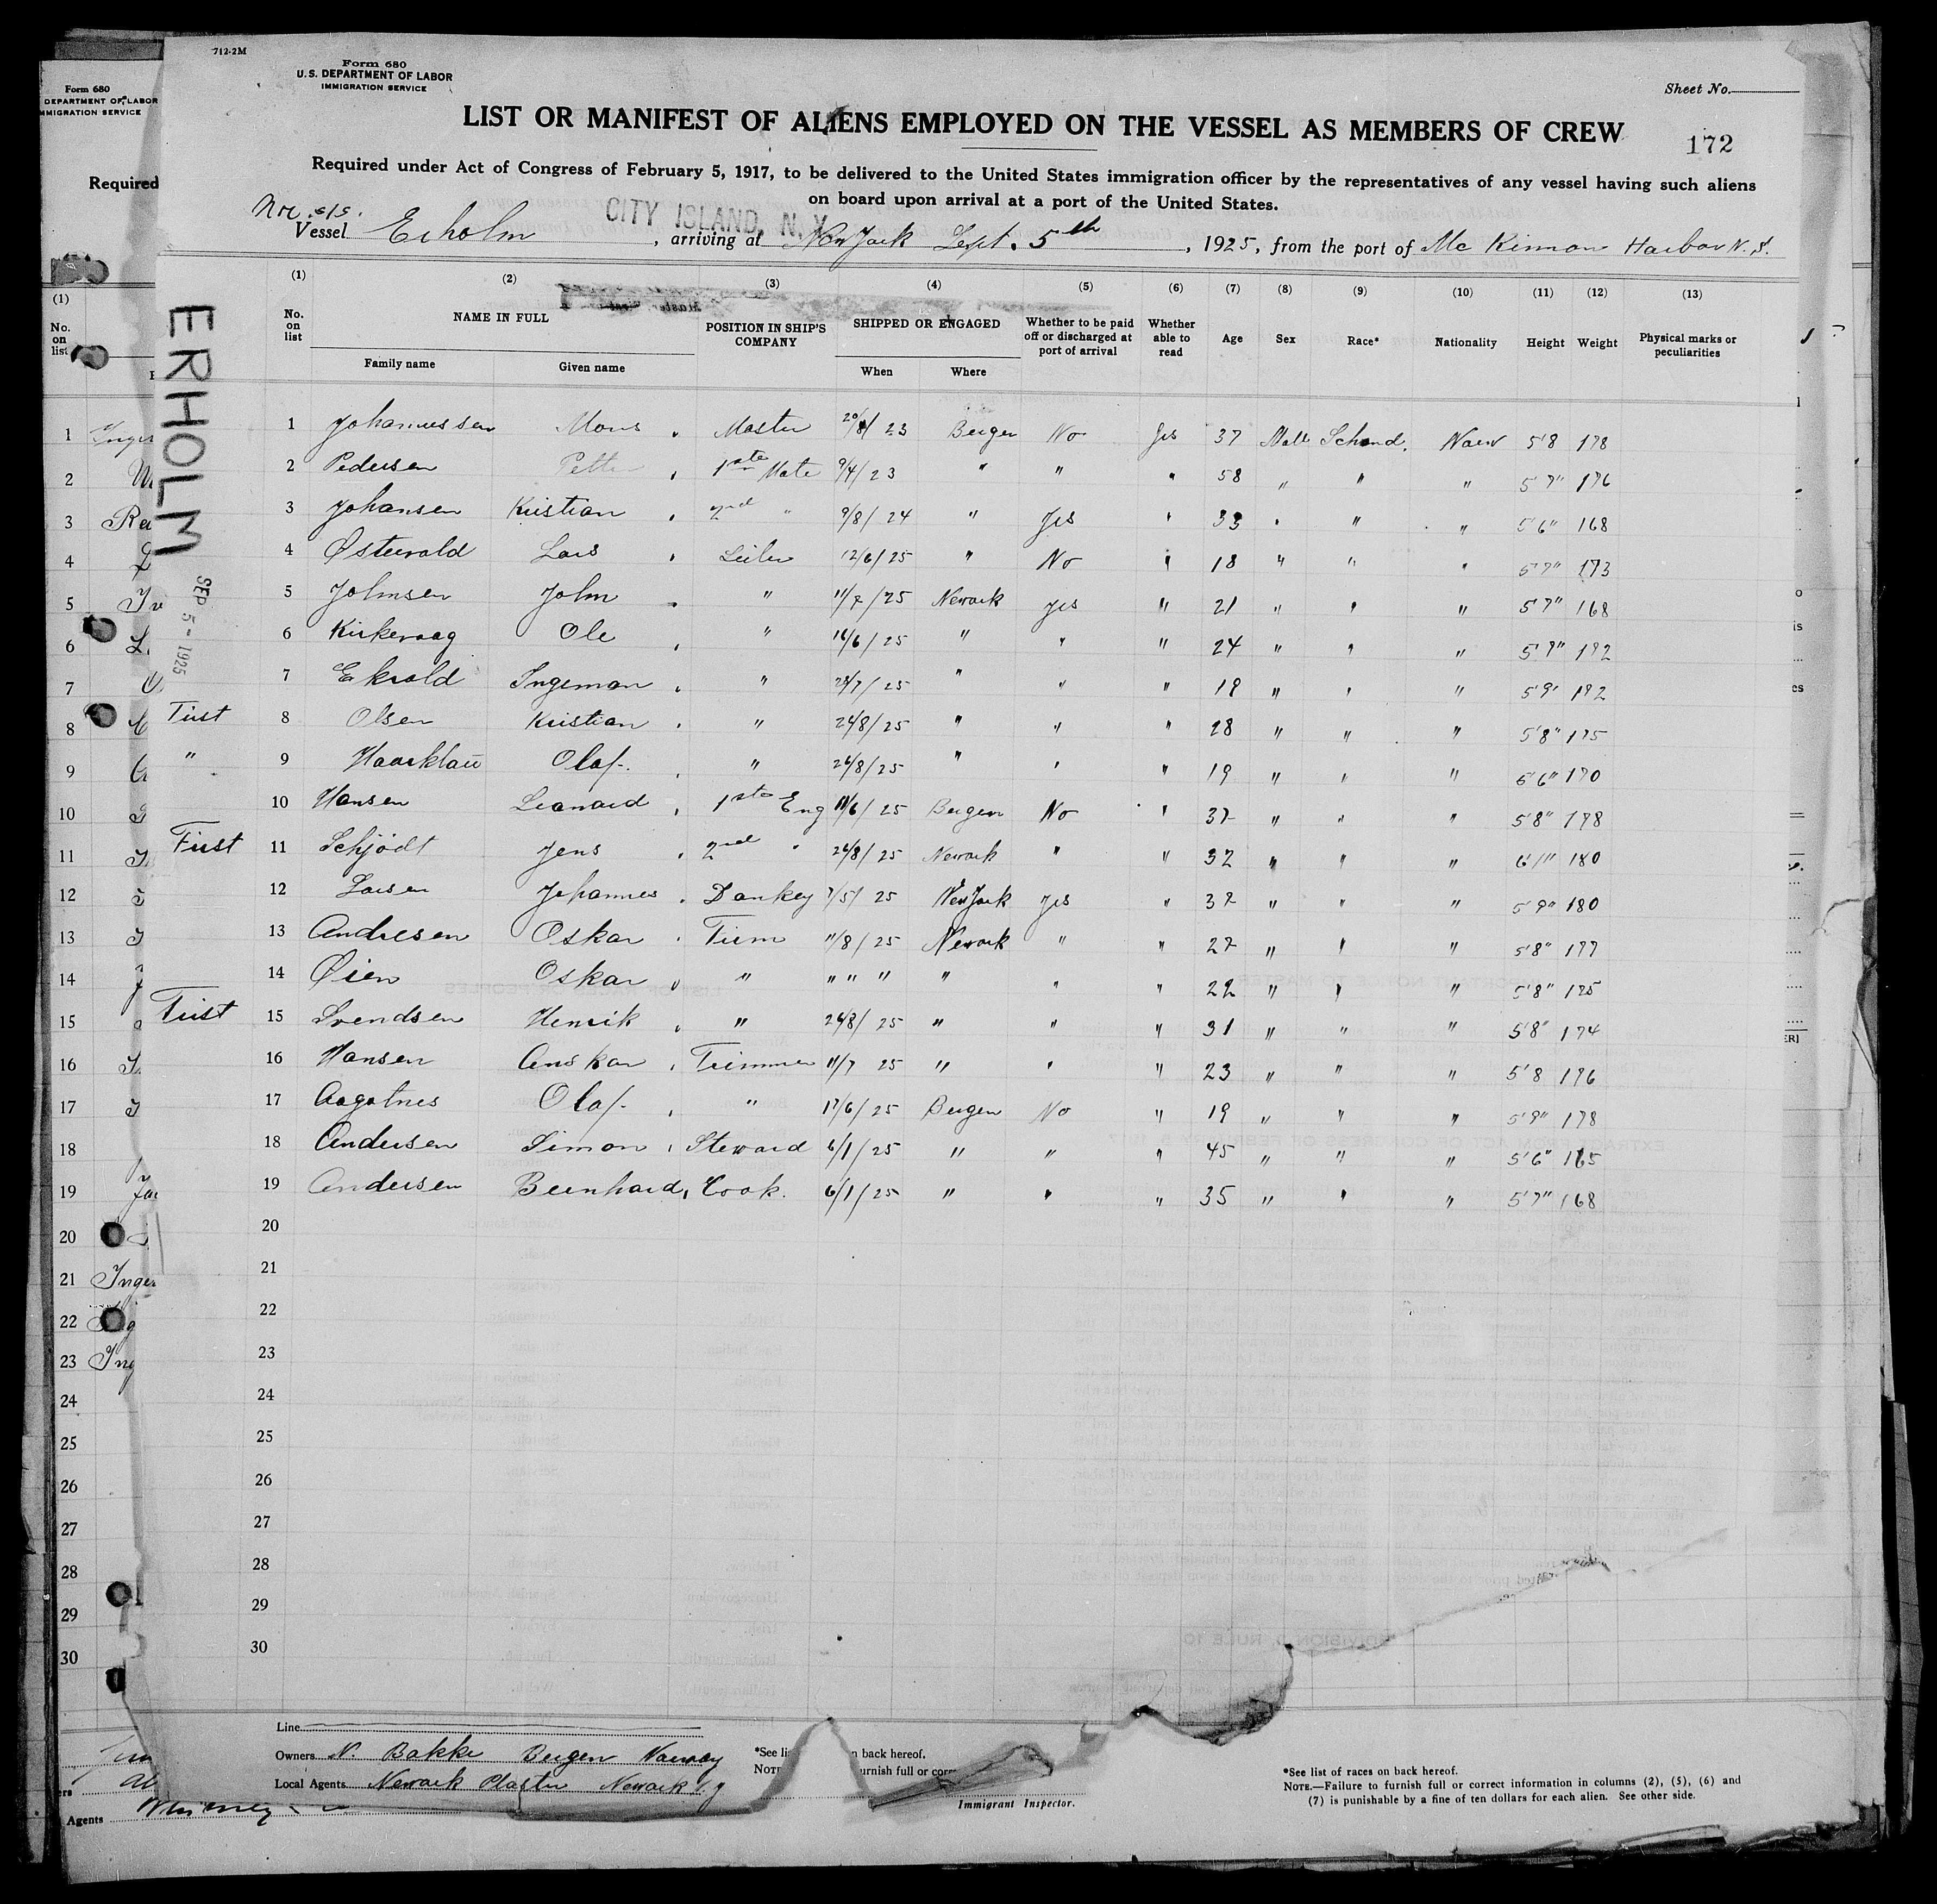 712-2M
Form 680
U.S. DEPARTMENT OF LABOR
IMMIGRATION SERVICE
Sheet No.
LIST OR MANIFEST OF ALIENS EMPLOYED ON THE VESSEL AS MEMBERS OF CREW
172
Required under Act of Congress of February 5, 1917, to be delivered to the United States immigration officer by the representatives of any vessel having such aliens
on board upon arrival at a port of the United States.
CITY ISLAND, N. Y.
Vessel Erholm, arriving at New York Sept. 5th, 1925, from the port of Mc Kinnon Harbor N.S.
ERHOLM
SEP 5 - 1925
(1) (2) (3) (4) (5) (6) (7) (8) (9) (10) (11) (12) (13)
No. on list NAME IN FULL POSITION IN SHIP'S COMPANY SHIPPED OR ENGAGED Whether to be paid off or discharged at port of arrival Whether able to read Age Sex Race* Nationality Height Weight Physical marks or peculiarities
Family name Given name When Where
1 Johannessen Mons Master 23 Bergen No Yes 37 Male Scand. Norw 5'8 178
2 Pedersen Petter 1ste Mate 9/4/23 " " " 58 " " " 5'7" 176
3 Johansen Kristian 2nd " 9/8/24 " Yes " 33 " " " 5'6" 168
4 Østervold Lars Seiler 12/6/25 " No " 18 " " " 5'7" 173
5 Johnsen John " 11/7/25 Newark Yes " 21 " " " 5'7" 168
6 Kirkevaag Ole " 16/6/25 " " " 24 " " " 5'7" 172
7 Ekvold Ingeman " /7/25 " " " 19 " " " 5'9" 172
First 8 Olsen Kristian " 26/8/25 " " " 28 " " " 5'8" 175
" 9 Olaf. " 26/8/25 " " " 19 " " " 5'6" 170
10 Hansen Leonard 1ste Eng /6/25 Bergen No " 37 " " " 5'8" 178
First 11 Schjödt Jens 2nd " 26/8/25 Newark " " 32 " " " 6'1" 180
12 Larsen Johannes Donkey 7/5/25 New York Yes " 32 " " " 5'9" 180
13 Andresen Oskar Firm 11/8/25 Newark " " 27 " " " 5'8" 177
14 Øien Oskar " " " " " " " 22 " " " 5'8" 175
First 15 Svendsen Henrik " 26/8/25 " " " 31 " " " 5'8" 174
16 Hansen Anskar Trimmer 11/7 25 " " " 23 " " " 5'8 176
17 Aagotnes Olaf. " 17/6/25 Bergen No " 19 " " " 5'9" 178
18 Andersen Simon Steward 6/1/25 " " " 45 " " " 5'6" 165
19 Andersen Bernhard Cook. 6/1/25 " " " 35 " " " 5'7" 168
20
21
22
23
24
25
26
27
28
29
30
Line
Owners N. Bakke Bergen Norway
Local Agents Newark Plaster Newark N.J
*See li n back hereof.
NOTE urnish full or corr
Immigrant Inspector.
*See list of races on back hereof.
NOTE.—Failure to furnish full or correct information in columns (2), (5), (6) and
(7) is punishable by a fine of ten dollars for each alien. See other side.
Form 680
DEPARTMENT OF LABOR
MMIGRATION SERVICE
Required
(1)
No.
on
list
1
2
3
4
5
6
7
8
9
10
11
12
13
14
15
16
17
18
19
20
21
22
23
24
25
26
27
28
29
30
Agents